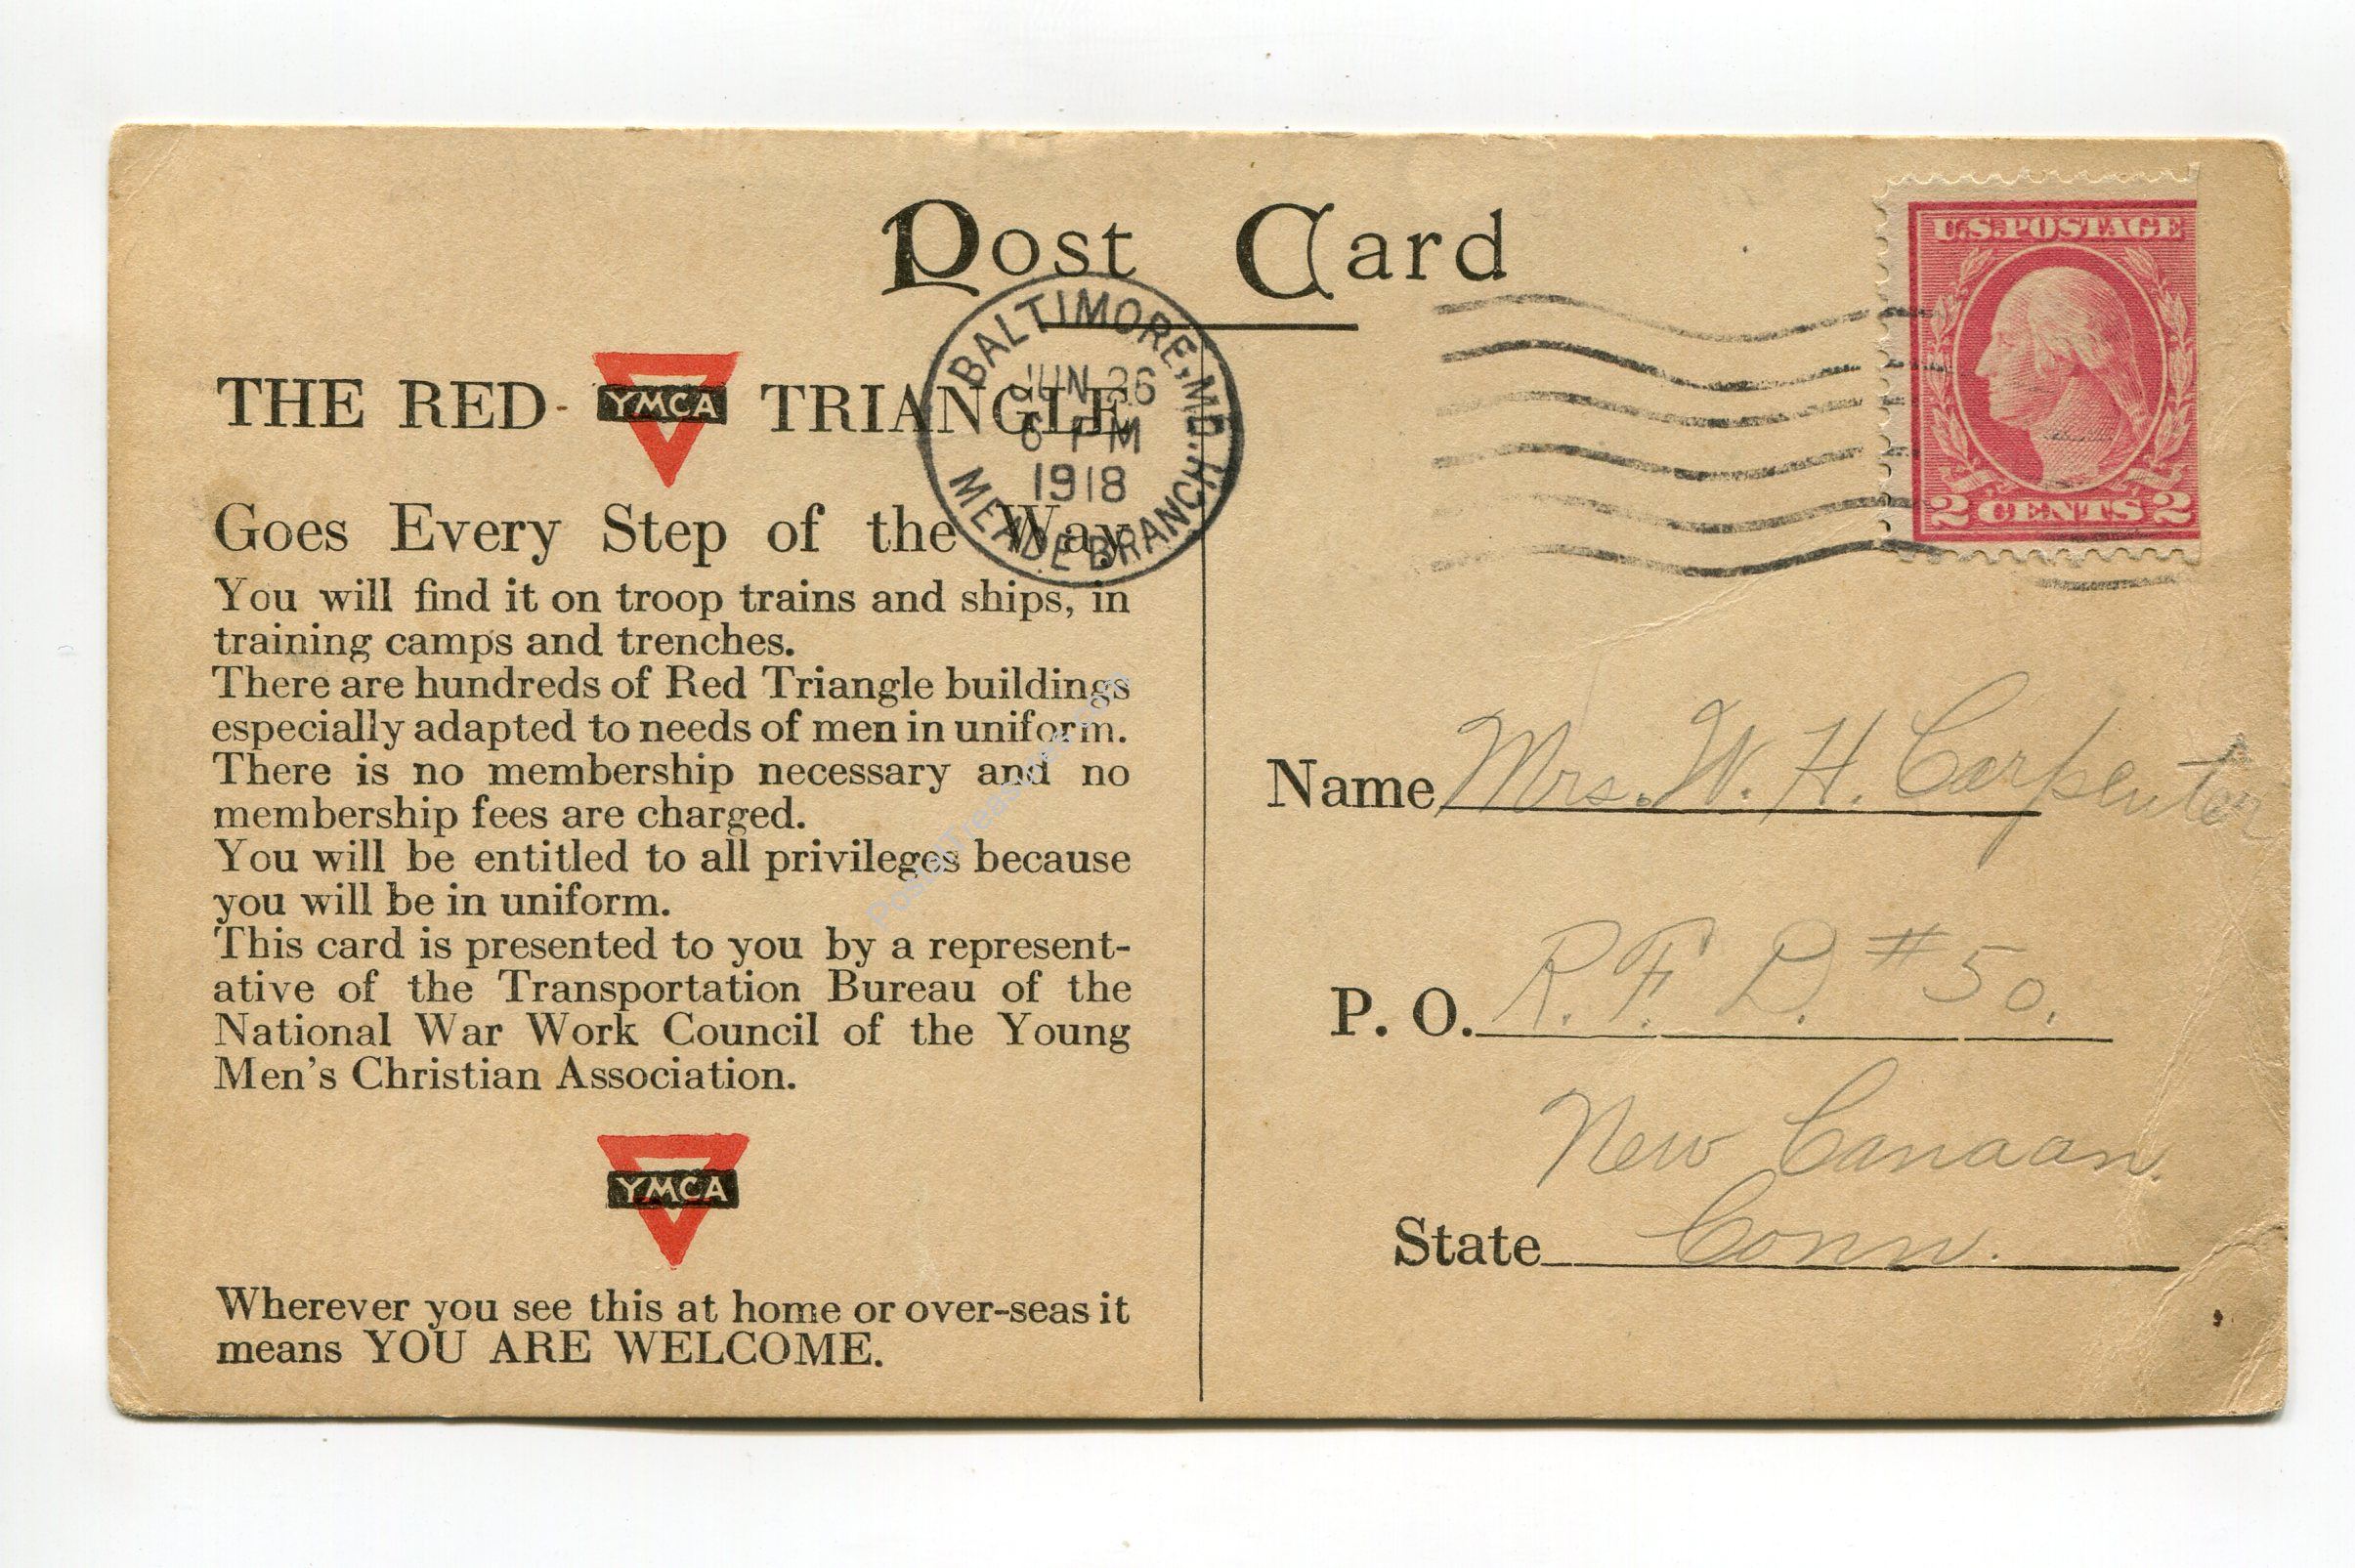 Post Card
U.S. POSTAGE
2 CENTS 2
BALTIMORE, MD.
JUN 26
6 PM
1918
MEADE BRANCH
THE RED YMCA TRIANGLE
Goes Every Step of the Way
You will find it on troop trains and ships, in
training camps and trenches.
There are hundreds of Red Triangle buildings
especially adapted to needs of men in uniform.
There is no membership necessary and no
membership fees are charged.
You will be entitled to all privileges because
you will be in uniform.
This card is presented to you by a represent-
ative of the Transportation Bureau of the
National War Work Council of the Young
Men's Christian Association.
YMCA
Wherever you see this at home or over-seas it
means YOU ARE WELCOME.
Name Mrs. W. H. Carpenter
P. O. R. F. D. #50.
New Canaan.
State Conn.